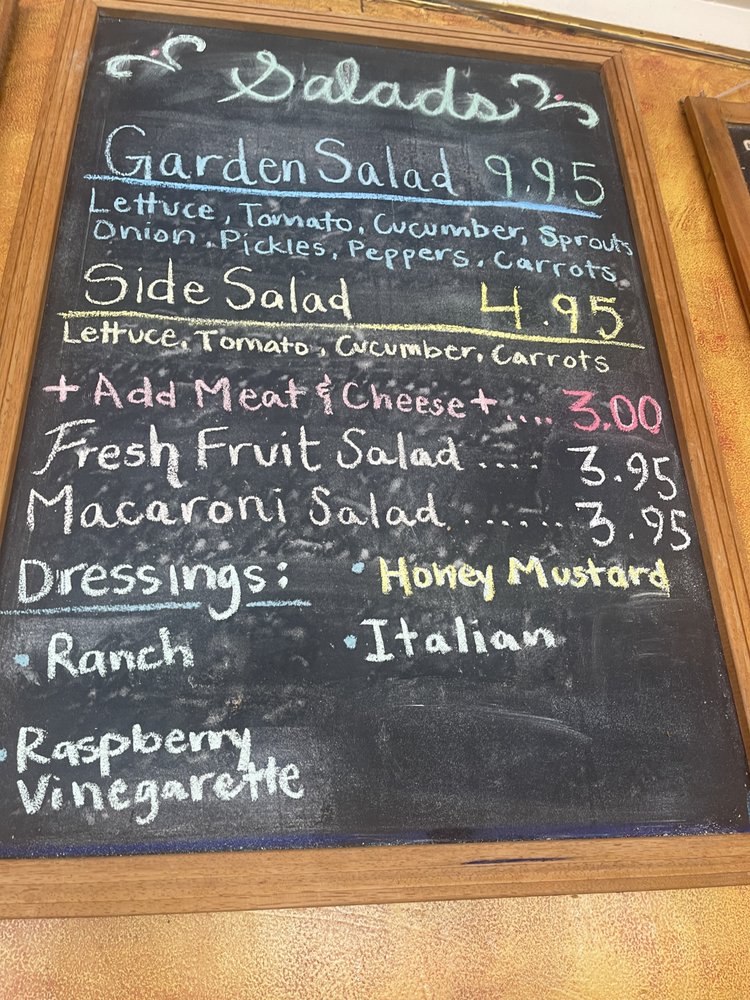 Salads
Garden Salad 9.95
Lettuce, Tomato, Cucumber, Sprouts
Onion, Pickles, Peppers, Carrots
Side Salad 4.95
Lettuce, Tomato, Cucumber, Carrots
+ Add Meat & Cheese + .... 3.00
Fresh Fruit Salad .... 3.95
Macaroni Salad ...... 3.95
Dressings:
• Honey Mustard
• Ranch
• Italian
• Raspberry
Vinegarette